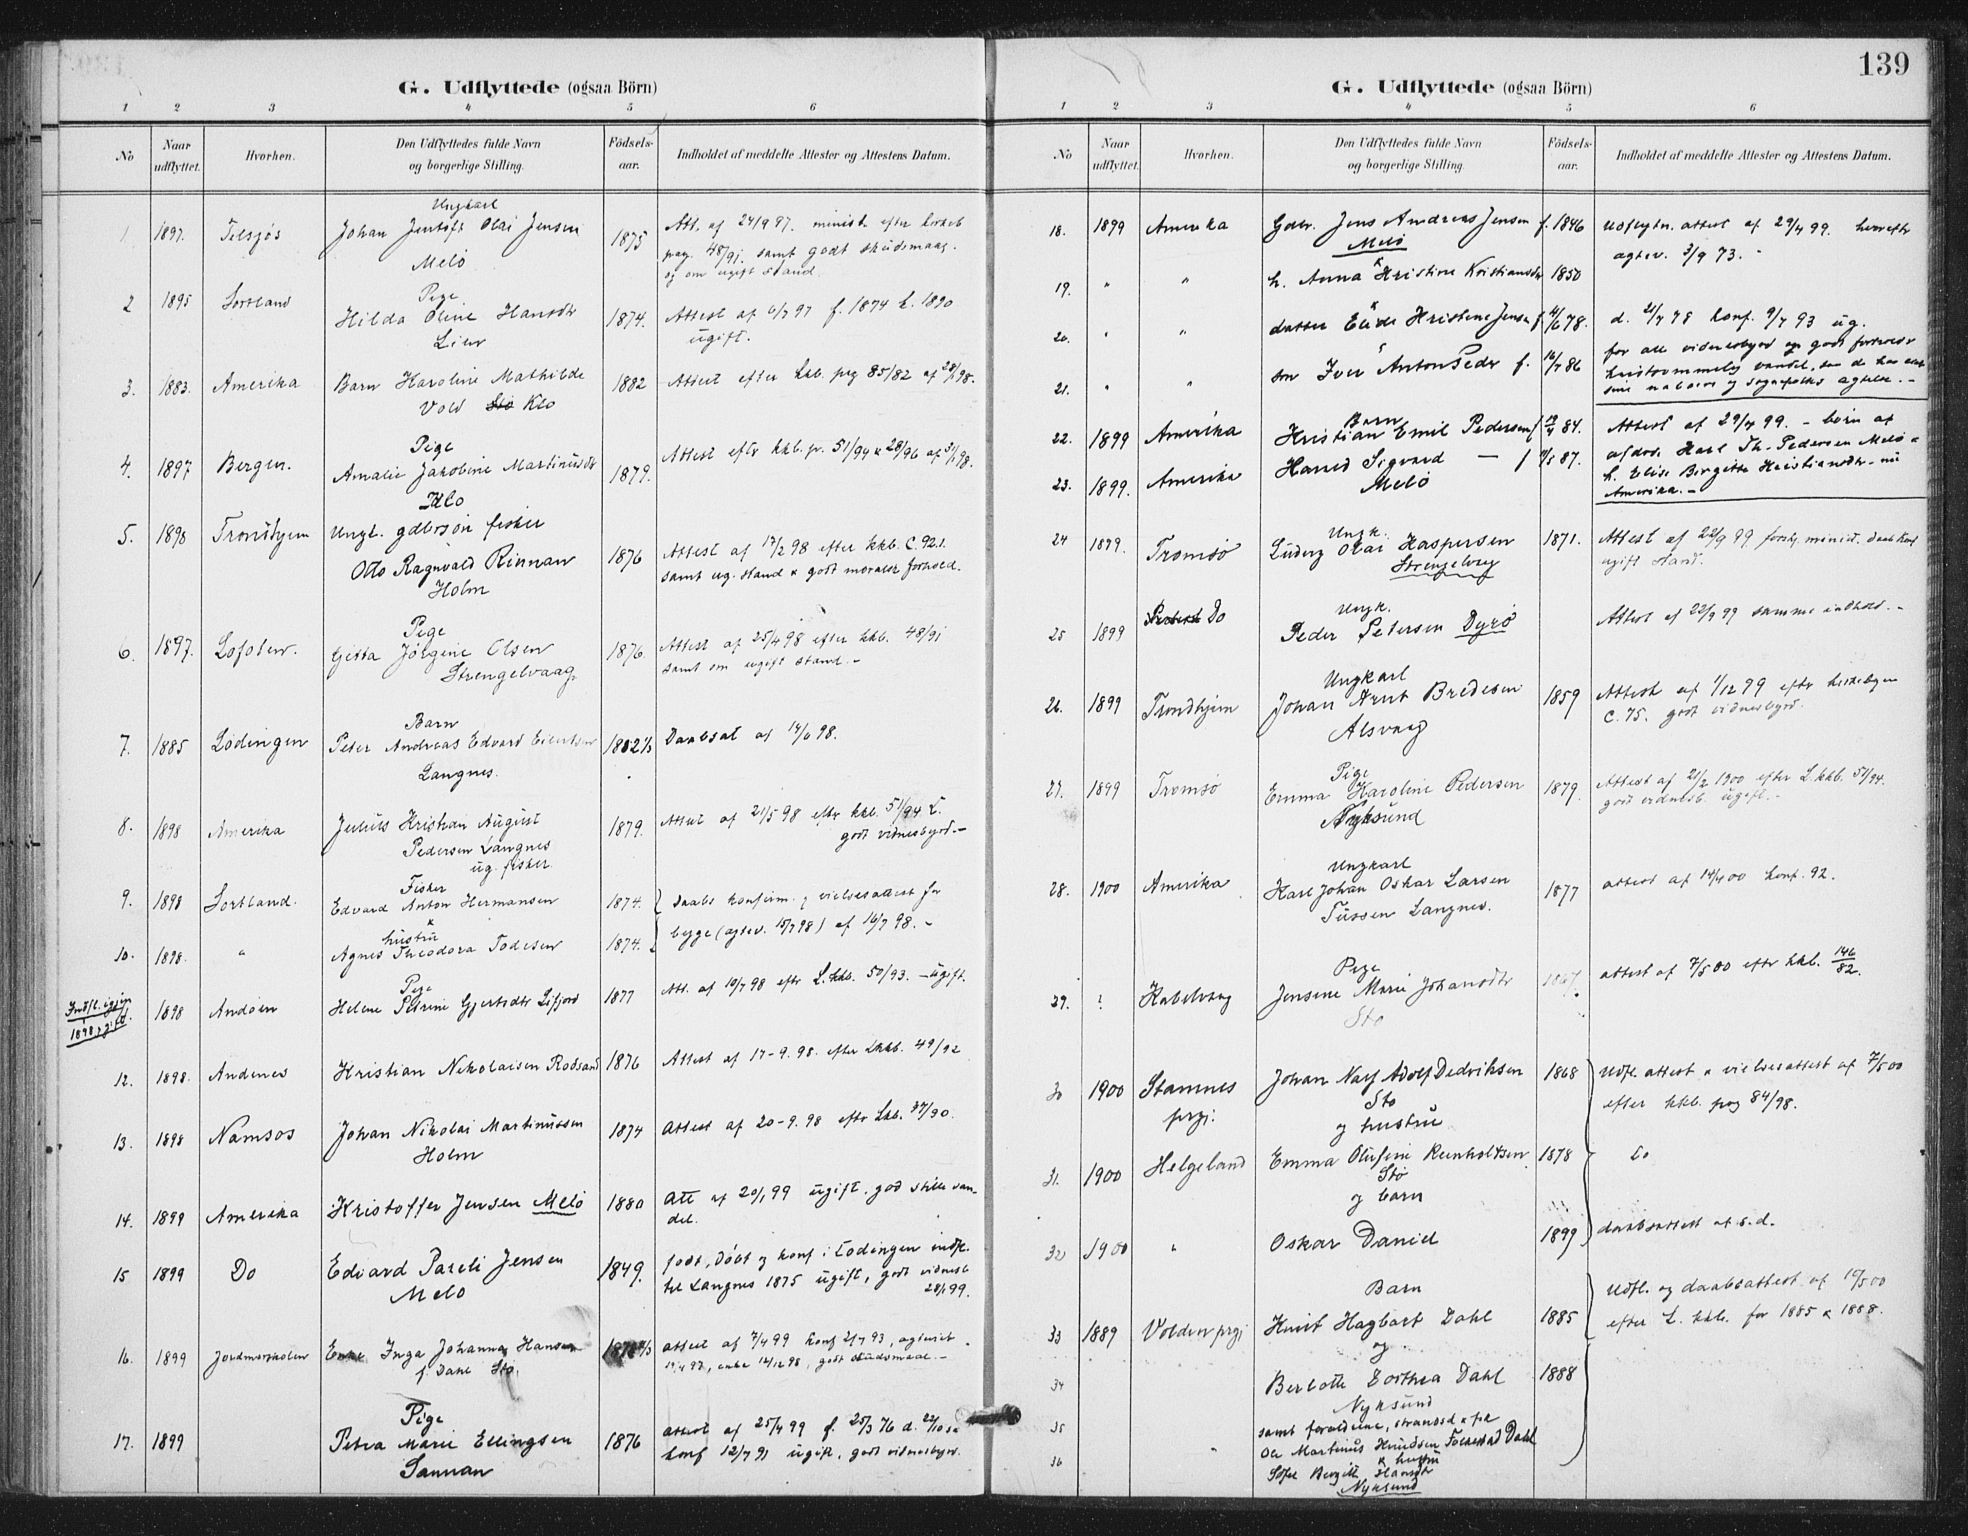 G. Udflyttede (ogsaa Börn)
1 2 3 4 5 6
No Naar udflyttet. Hvorhen. Den Udflyttedes fulde Navn og borgerlige Stilling. Födsels-aar. Indholdet af meddelte Attester og Attestens Datum.
Ungkarl
1 1897. Johan Olai Jensen 1875 Att. af 24/9 97. minist. efter
Melö pag. 48/91. samt godt skudsmaal.
og om ugift stand.
Pige
2 1895 Sortland Hilda Oline Hansdtr 1874. Attest af 6/7 97 f. 1874 k. 1890
ugift.
3. 1883. Amerika Barn Karoline Mathilde 1882 Attest efter kkb. pag 85/82 af
Vold Klo
Pige
4. 1897 Bergen. Amalie Jakobine Martinusdtr 1879. Attest eftr kkb. pr. 51/94 & 28/96 af
Klo
5. 1898 Trondhjem Ungk. gdbrsøn fisker
Otto Ragnvald Rinnan 1876 Attest af 17/2 98 efter kkb. C. 92.1.
Holm samt ug. stand & godt moralsk forhold.
Pige
6. 1897. Lofoten. Gitta Jörgine Olsen 1876. Attest af 25/4 98 efter kkb. 48/91
Strengelvaag samt om ugift stand.-
Barn
7. 1885 Lödingen Peter Andreas Edvard Eilertsen 1882 Daabsat af 14/6 98.
Langnes.
8. 1898 Amerika Julius Kristian August 1879. Attest af 21/5 98 eftr kkb. 51/94 L.
Pedersen Langnes godt vidnesbyrd.-
ug. fisker.
Fisker
9. 1898 Sortland. Edvard Anton Hermansen 1874. daabs konfirm. og vielsesattest for
& hustru
10. 1898. " Agnes Theodora Todesen 1874. begge (agtev. 15/7 98) af 16/7 98.-
Pige
1898 Andöen Helene Petrine Gjertsdtr Lifjord 1877 Att. af 10/7 98 eftr L.kkb. 50/93.- ugift.
Indfl. igjen
1898, gift.
12. 1898. Andenes Kristian Nikolaisen Rodsand 1876 Attest af 17-9.98. efter Lkkb. 49/92
13. 1898 Namsos Johan Nikolai Martinussen 1874 Attest af 20-9.98 eftr Lkb. 37/90.
Holm
14. 1899 Amerika Kristoffer Jensen Melö 1880 Att af 20/1 99 ugift. god stille van-
del.
15 1899 Do Edvard Pareli Jensen 1849. födt, döbt og konf i Lödingen indfl.
Melö til Langnes 1875 ugift, godt vidnesb
28/1 99.
16. 1899 Jordmorskolen Enke Inga Johanna Hansen attest af 7/4 99 konf 2/7 93, agtviet
f. Dahl Stö. enke 14/12 98, godt skudsmaal.-
Pige
17. 1899 Petra Marie Ellingsen 1876 attest af 25/4 99 f. 25/3 76 d. 22/10 s.a
Sannan konf 12/7 91 ugift, godt vidnesbyrd.
139
G. Udflyttede (ogsaa Börn)
1 2 3 4 5 6
No Naar udflyttet. Hvorhen. Den Udflyttedes fulde Navn og borgerlige Stilling. Födsels-aar. Indholdet af meddelte Attester og Attestens Datum.
18. 1899 Amerika Gdbr. Jens Andreas Jensen f. 1846 Udflytn. attest af 29/4 99. herefter
Melö agtev. 3/9 73.-
19. " " h. Anna Kristine Kristiansdtr 1850
20. " " datter Kristine Jensen f. 78. konf. 9/7 93 ug.
for alle vidnesbyrd og godt forhold
21. " " søn Iver Anton Peder f. 16/7 86 kristsømmelig vandel, saa de har alle
sine naboers og sognefolks agtelse.-
Barn
22. 1899 Amerika Kristian Emil Pedersen f 84. Attest af 29/4 99.- börn af
afdøde Karl Th. Pedersen Melö &
23. 1899. Amerika Harald Sigvard - f 87. h. Elise Birgitte Kristiansdtr- nu
Melö Amerika.-
Ungk.
24 1899. Tromsö Ludvig Olai Kaspersen 1871. Attest af 22/9 99
Strengelvaag ugift stand.
Ungk.
25 1899 Do Peder Petersen Dyrö Attest af 22/9 99 samme indhold.-
Ungkarl
26. 1899 Trondhjem Johan Arnt Bredesen 1859 Attest af 1/12 99 eftr kirkebogen
Alsvaag C. 75. godt vidnesbyrd.
Pige
27. 1899 Tromsö Emma Karoline Pedersen 1879. Attest af 21/2 1900 efter L.kkb. 51/94.
Nyksund godt vidnesb. ugift.-
Ungkarl
28. 1900 Amerika Karl Johan Oskar Larsen 1877 attest af 14/4 00 konf. 92.
Tussen Langnes.
Pige
29. ? Kabelvaag Jensine Marie Johansdtr attest af 7/5 00 eftr kkb. 146/82.
Stö
30 1900 Stamnes Johan Adolf Dedriksen 1868 Udfl. attest & vielsesattest af 7/5 00
prgj: Stö efter kkb. pag 84/98.
og hustru
31. 1900 Helgeland Emma Olufine Reinholtsen 1878 Do
Stö
og barn
32 1900 " Oskar Daniel 1899 daabsattest af s.d.
Barn
33 1889 Volden prgj Knut Hagbart Dahl 1885 Udfl. og daabsattest af 10/5 00
og efter L. kkb. for 1885 & 1888.
34 Berlotte Dorthea Dahl 1888
Nyksund
35 samt forældrene, strandsd & fisk
Ole Martinus Knudsen Dahl
36 " & hustru
Sofie Bergitte Hansdtr
Nyksund